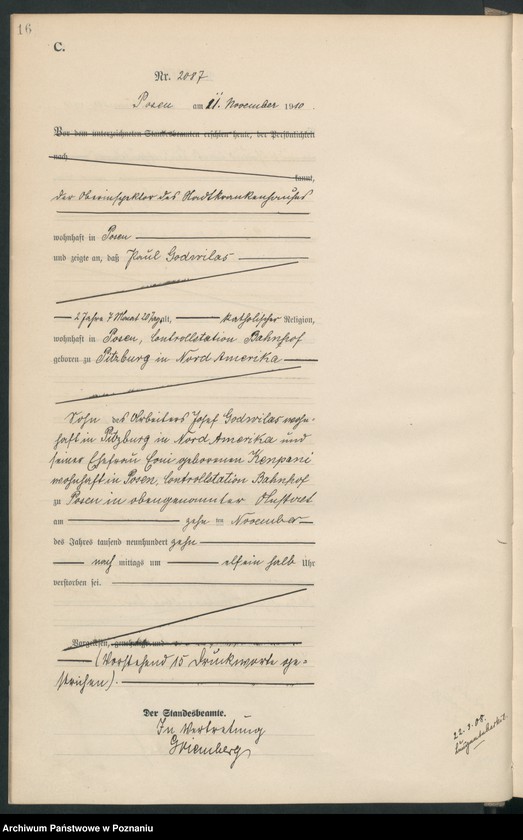 16
C.
Nr. 2087
Posen am 11. November 1910.
Vor dem unterzeichneten Standesbeamten erschien heute, der Persönlichkeit
nach
kannt,
der Oberinspektor des Stadtkrankenhauses
wohnhaft in Posen
und zeigte an, daß Paul Godwilas
2 Jahre 7 Monat 20 Tag alt, katholischer Religion,
wohnhaft in Posen, Controllstation Bahnhof
geboren zu Pitzburg in Nord Amerika
Sohn des Arbeiters Josef Godwilas wohn-
haft in Pitzburg in Nord Amerika und
seiner Ehefrau geborenen Kenpani
wohnhaft in Posen, Controllstation Bahnhof
zu Posen in obengenannter
am zehn ten November
des Jahres tausend neunhundert zehn
nach mittags um elf ein halb Uhr
verstorben sei.
Vorgelesen, genehmigt und
(Vorstehend 15 Druckworte ge-
strichen).
Der Standesbeamte.
In Vertretung
22. 9. 08.
Archiwum Państwowe w Poznaniu